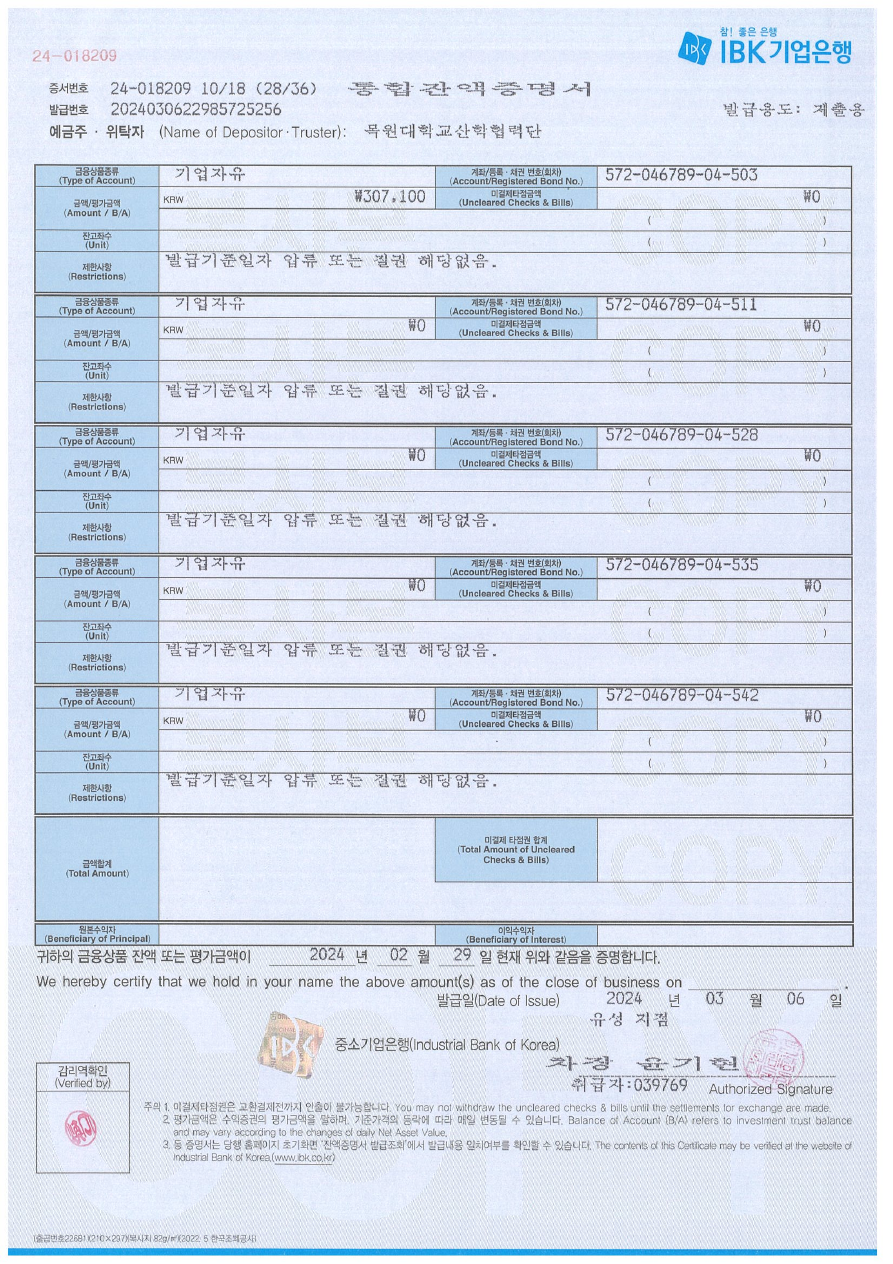 24-018209
참! 좋은 은행
IBK기업은행
증서번호 24-018209 10/18 (28/36) 통합잔액증명서
발급번호 2024030622985725256 발급용도: 제출용
예금주 · 위탁자 (Name of Depositor · Truster): 목원대학교산학협력단
금융상품종류 (Type of Account) 기업자유 계좌/등록 · 채권 번호(회차) (Account/Registered Bond No.) 572-046789-04-503
금액/평가금액 (Amount / B/A) KRW ₩307,100 미결제타점금액 (Uncleared Checks & Bills) ₩0
( )
잔고좌수 (Unit) ( )
제한사항 (Restrictions) 발급기준일자 압류 또는 질권 해당없음.
금융상품종류 (Type of Account) 기업자유 계좌/등록 · 채권 번호(회차) (Account/Registered Bond No.) 572-046789-04-511
금액/평가금액 (Amount / B/A) KRW ₩0 미결제타점금액 (Uncleared Checks & Bills) ₩0
( )
잔고좌수 (Unit) ( )
제한사항 (Restrictions) 발급기준일자 압류 또는 질권 해당없음.
금융상품종류 (Type of Account) 기업자유 계좌/등록 · 채권 번호(회차) (Account/Registered Bond No.) 572-046789-04-528
금액/평가금액 (Amount / B/A) KRW ₩0 미결제타점금액 (Uncleared Checks & Bills) ₩0
( )
잔고좌수 (Unit) ( )
제한사항 (Restrictions) 발급기준일자 압류 또는 질권 해당없음.
금융상품종류 (Type of Account) 기업자유 계좌/등록 · 채권 번호(회차) (Account/Registered Bond No.) 572-046789-04-535
금액/평가금액 (Amount / B/A) KRW ₩0 미결제타점금액 (Uncleared Checks & Bills) ₩0
( )
잔고좌수 (Unit) ( )
제한사항 (Restrictions) 발급기준일자 압류 또는 질권 해당없음.
금융상품종류 (Type of Account) 기업자유 계좌/등록 · 채권 번호(회차) (Account/Registered Bond No.) 572-046789-04-542
금액/평가금액 (Amount / B/A) KRW ₩0 미결제타점금액 (Uncleared Checks & Bills) ₩0
( )
잔고좌수 (Unit) ( )
제한사항 (Restrictions) 발급기준일자 압류 또는 질권 해당없음.
금액합계 (Total Amount) 미결제 타점권 합계 (Total Amount of Uncleared Checks & Bills)
COPY
원본수익자 (Beneficiary of Principal) 이익수익자 (Beneficiary of Interest)
귀하의 금융상품 잔액 또는 평가금액이 2024 년 02 월 29 일 현재 위와 같음을 증명합니다.
We hereby certify that we hold in your name the above amount(s) as of the close of business on .
발급일(Date of Issue) 2024 년 03 월 06 일
유성 지점
중소기업은행(Industrial Bank of Korea)
차장 윤기현
취급자:039769 Authorized Signature
감리역확인
(Verified by)
주의 1. 미결제타점권은 교환결제전까지 인출이 불가능합니다. You may not withdraw the uncleared checks & bills until the settlements for exchange are made.
2. 평가금액은 수익증권의 평가금액을 말하며, 기준가격의 등락에 따라 매일 변동될 수 있습니다. Balance of Account (B/A) refers to investment trust balance
and may vary according to the changes of daily Net Asset Value.
3. 동 증명서는 당행 홈페이지 초기화면 '잔액증명서 발급조회'에서 발급내용 일치여부를 확인할 수 있습니다. The contents of this Certificate may be verified at the website of
Industrial Bank of Korea.(www.ibk.co.kr)
COPY